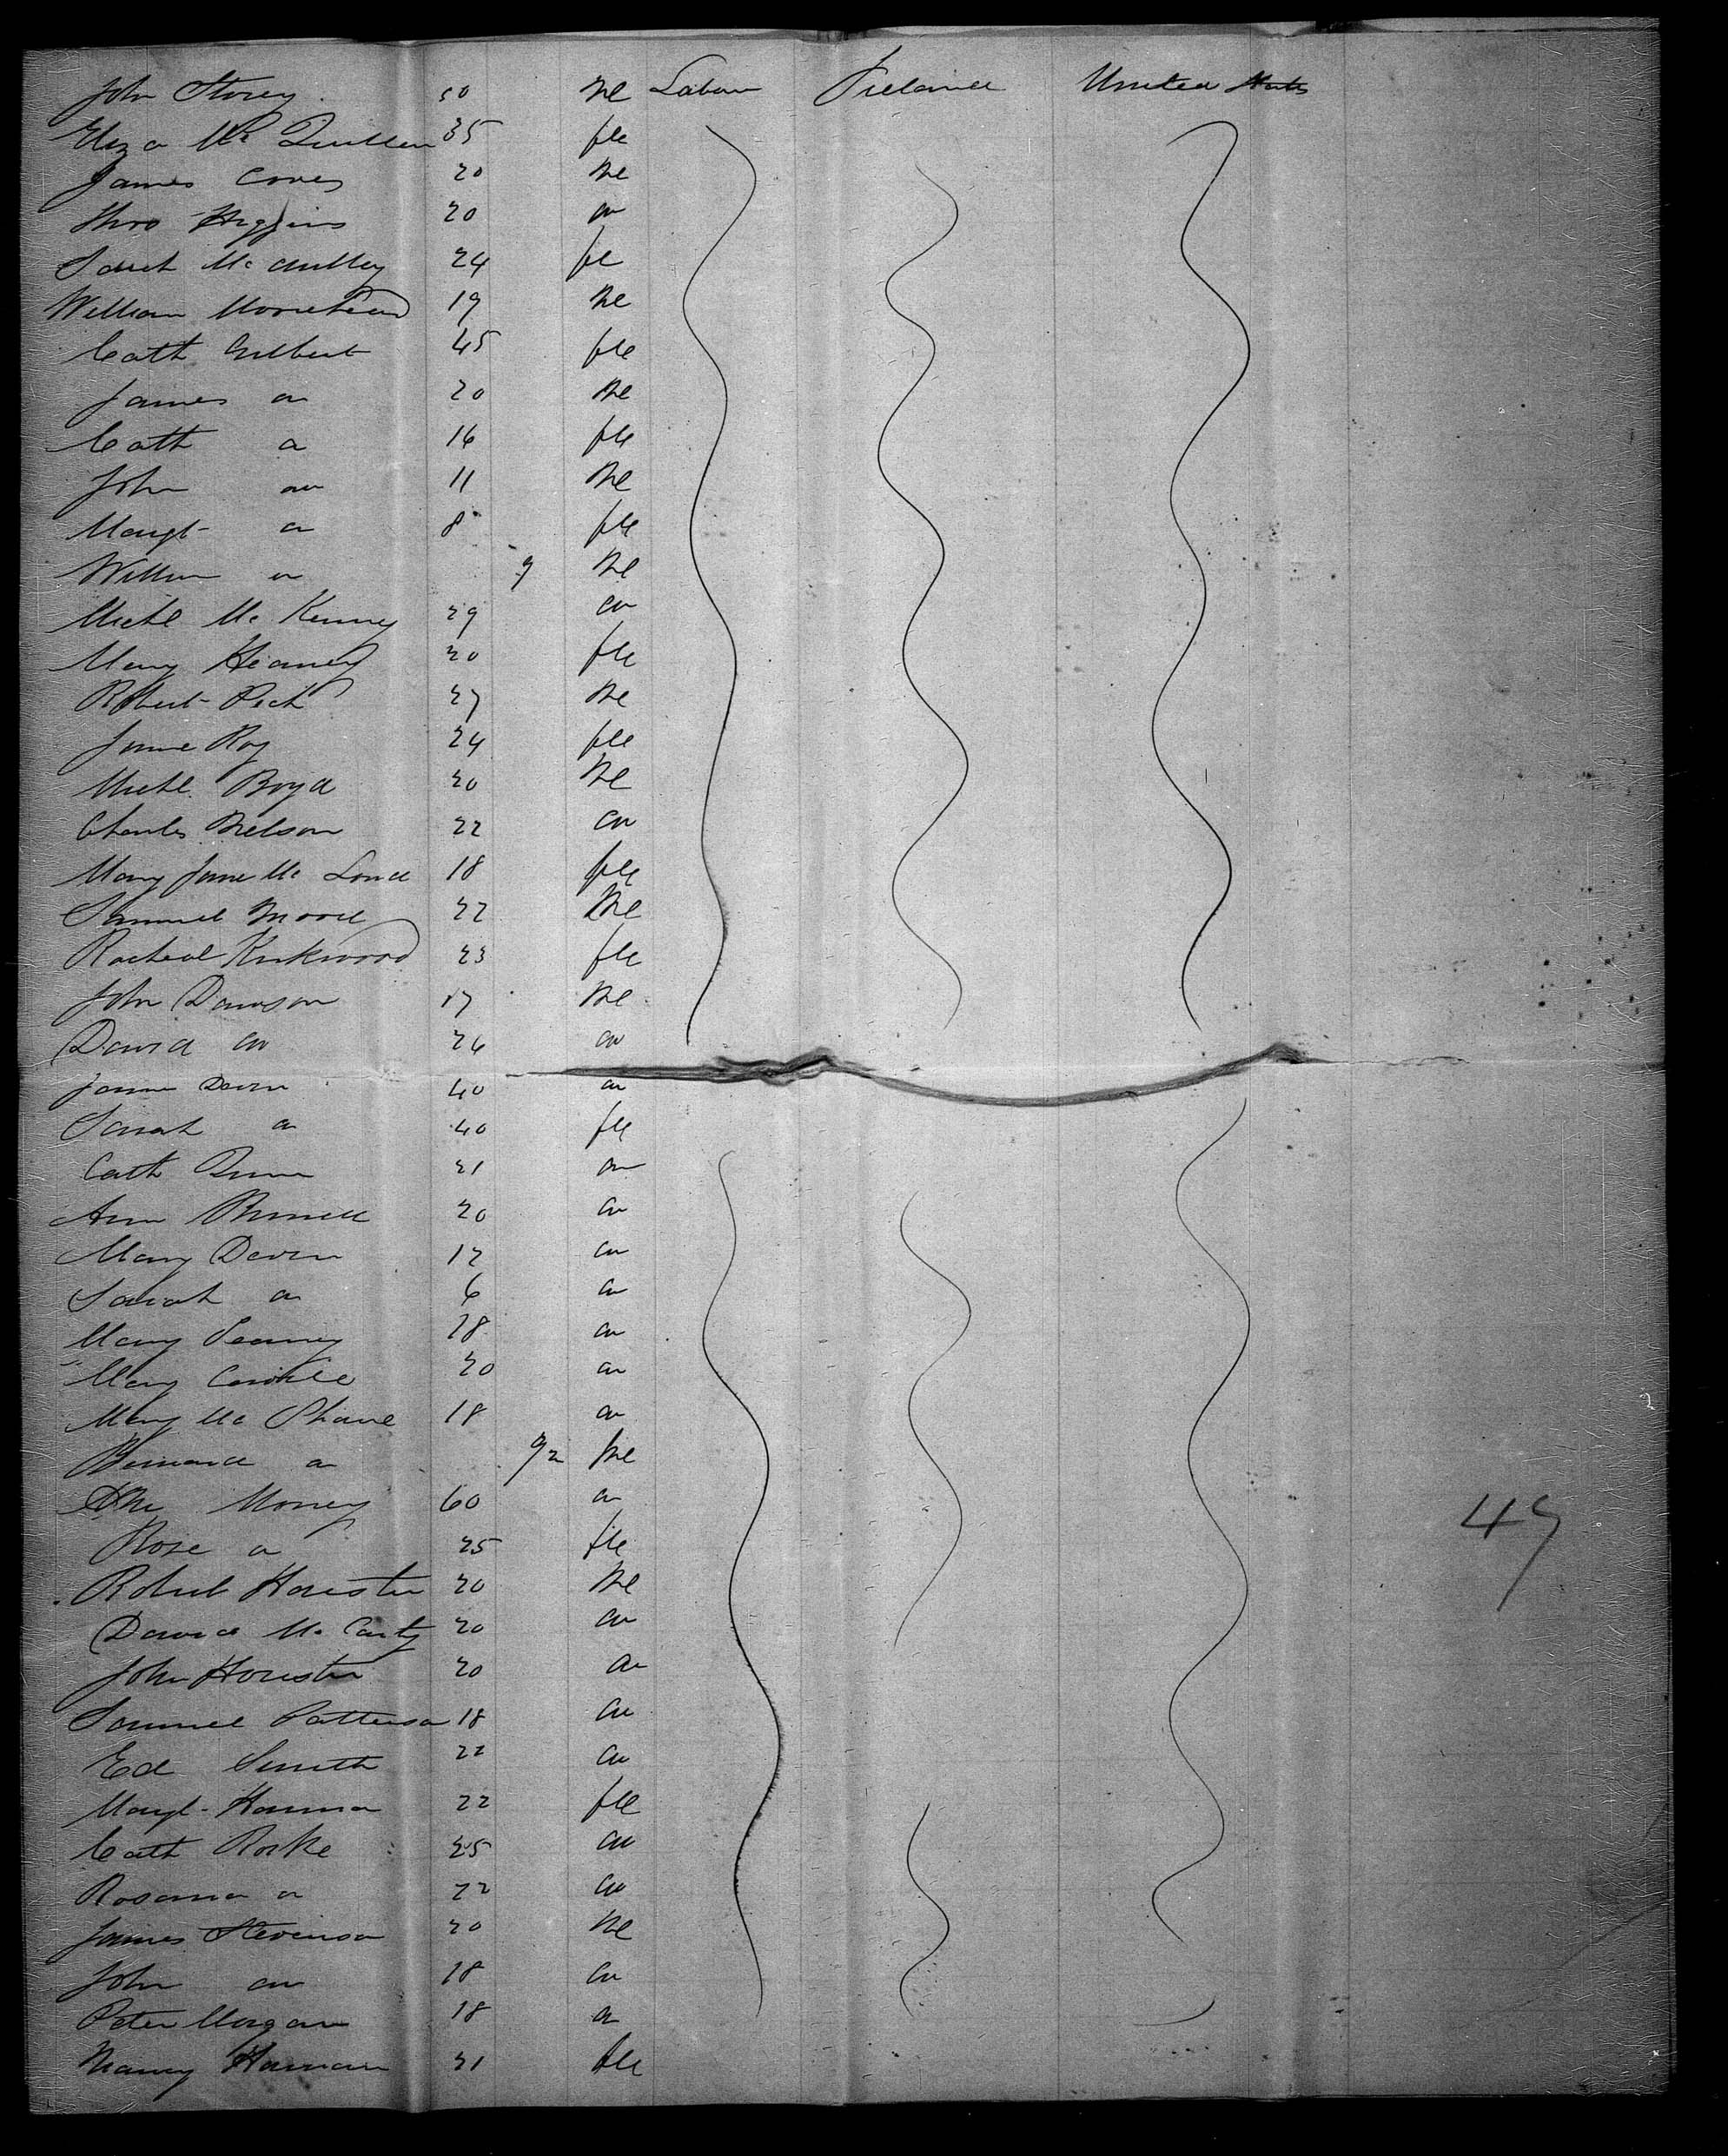 John Storey 50 Me Labour Ireland United States
Eliza Mc Quillen 35 fle
James Coves 20 Me
Thos Higgins 20 do
Sarah McAulley 24 fle
William Moorehead 19 Me
Cath Gilbert 45 fle
James do 20 Me
Cath do 16 fle
John do 11 Me
Margt do 8 fle
William do 9 Me
Michl Mc Kenney 29 do
Mary Heaney 20 fle
Robert Peck 27 Me
Jane Roy 24 fle
Michl Boyd 20 Me
Charles Nelson 22 do
Mary Jane Mc 18 fle
Samuel Moore 22 Me
Racheal Kirkwood 23 fle
John Dawson 17 Me
David do 26 do
James Devin 40 do
Sarah do 40 fle
Cath Quinn 21 do
Ann 20 do
Mary Devin 12 do
Sarah do 6 do
Mary 18 do
Mary 20 do
Mary Mc Shane 18 do
Bernard do 9/12 Me
Money 60 do
Rose do 25 fle
Robert Houston 20 Me
David Mc Carty 20 do
John Houston 20 do
Samuel Patterson 18 do
Ed Smith 22 do
Margt Hanna 22 fle
Cath Rorke 25 do
Rosanna do 22 do
James Stevenson 20 Me
John do 18 do
Peter Morgan 18 do
Nancy Hannan 21 fle
49